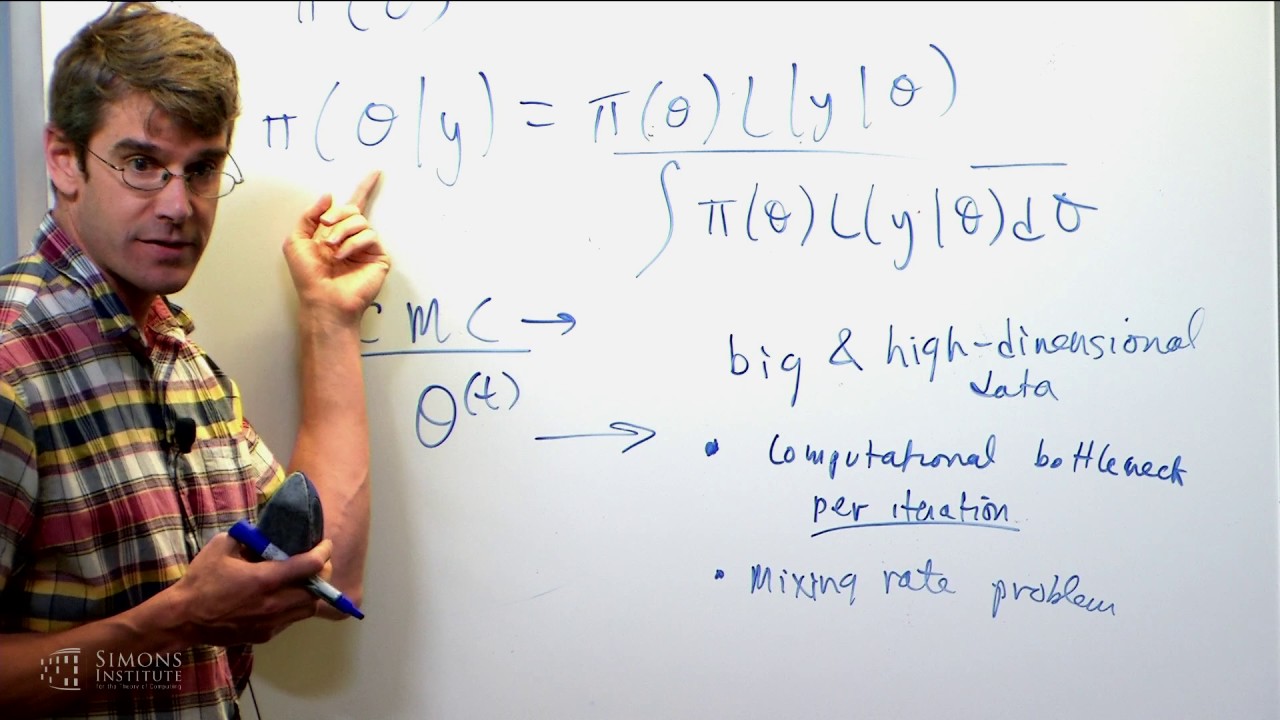 π(θ)
π(θ|y) = π(θ) L(y|θ)
∫ π(θ) L(y|θ) dθ
C M C →
θ(t) →
big & high-dimensional
data
• Computational bottleneck
per iteration
• Mixing rate problem
SIMONS
INSTITUTE
for the Theory of Computing